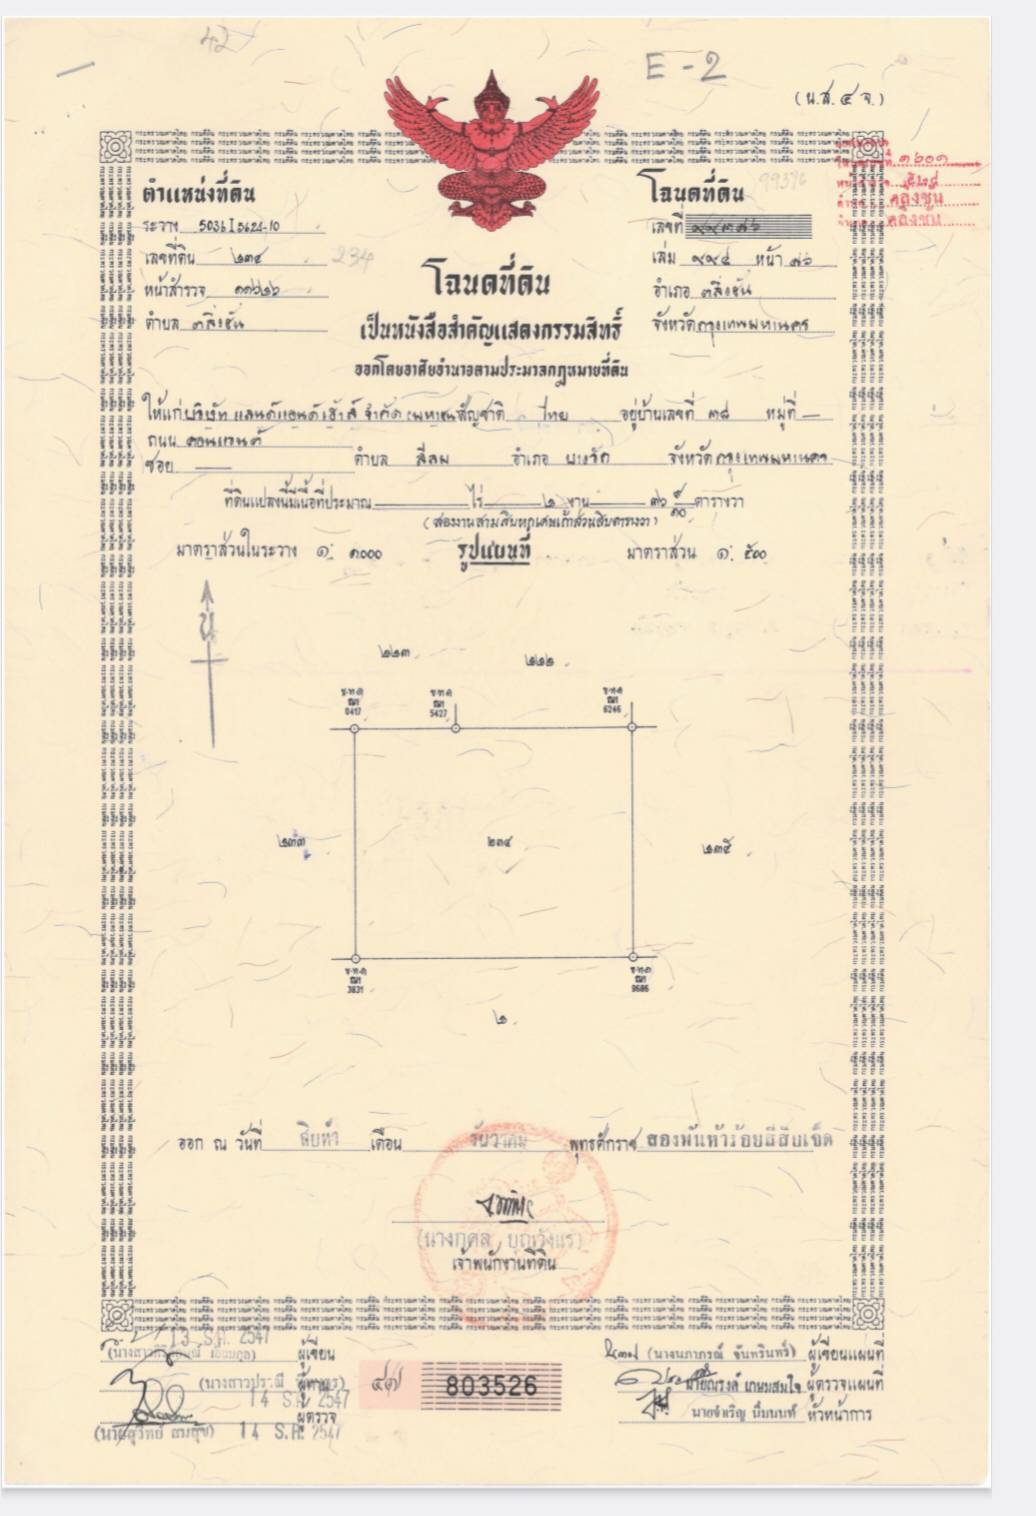 42
E - 2
(น.ส. ๔ จ.)
ตำแหน่งที่ดิน
ระวาง 5036 I
เลขที่ดิน ๒๓๔
234
หน้าสำรวจ
ตำบล ตลิ่งชัน
โฉนดที่ดิน
99376
เลขที่ ๙๙๓๗๖
เล่ม ๙๙๔ หน้า ๗๖
อำเภอ ตลิ่งชัน
จังหวัด กรุงเทพมหานคร
๑๖๐๑
คลองชัน
โฉนดที่ดิน
เป็นหนังสือสำคัญแสดงกรรมสิทธิ์
ออกโดยอาศัยอำนาจตามประมวลกฎหมายที่ดิน
ให้แก่ บริษัท แลนด์แอนด์เฮ้าส์ จำกัด (มหาชน) สัญชาติ ไทย อยู่บ้านเลขที่ ๓๘ หมู่ที่ —
ถนน คอนแวนต์
ซอย — ตำบล สีลม อำเภอ บางรัก จังหวัด กรุงเทพมหานคร
ที่ดินแปลงนี้มีเนื้อที่ประมาณ — ไร่ ๒ งาน ๓๖ ๕/๑๐ ตารางวา
(สองงานสามสิบหกเศษห้าส่วนสิบตารางวา)
มาตราส่วนในระวาง ๑: ๑๐๐๐ รูปแผนที่ มาตราส่วน ๑: ๕๐๐
น
๒๒๓ ๒๒๒
0417 5427 6246
๒๓๓ ๒๓๔ ๒๓๕
3831 9686
๒
ออก ณ วันที่ สิบห้า เดือน ธันวาคม พุทธศักราช สองพันห้าร้อยสี่สิบเจ็ด
เจ้าพนักงานที่ดิน
13 ธ.ค. 2547
ผู้เขียน
14 ธ.ค. 2547
ผู้ตรวจ
14 ธ.ค. 2547
803526
(นางนภาภรณ์ จันทรินทร์) ผู้เขียนแผนที่
นายณรงค์ เกษมสมใจ ผู้ตรวจแผนที่
นายจำเริญ นิ่มนนท์ หัวหน้าการ